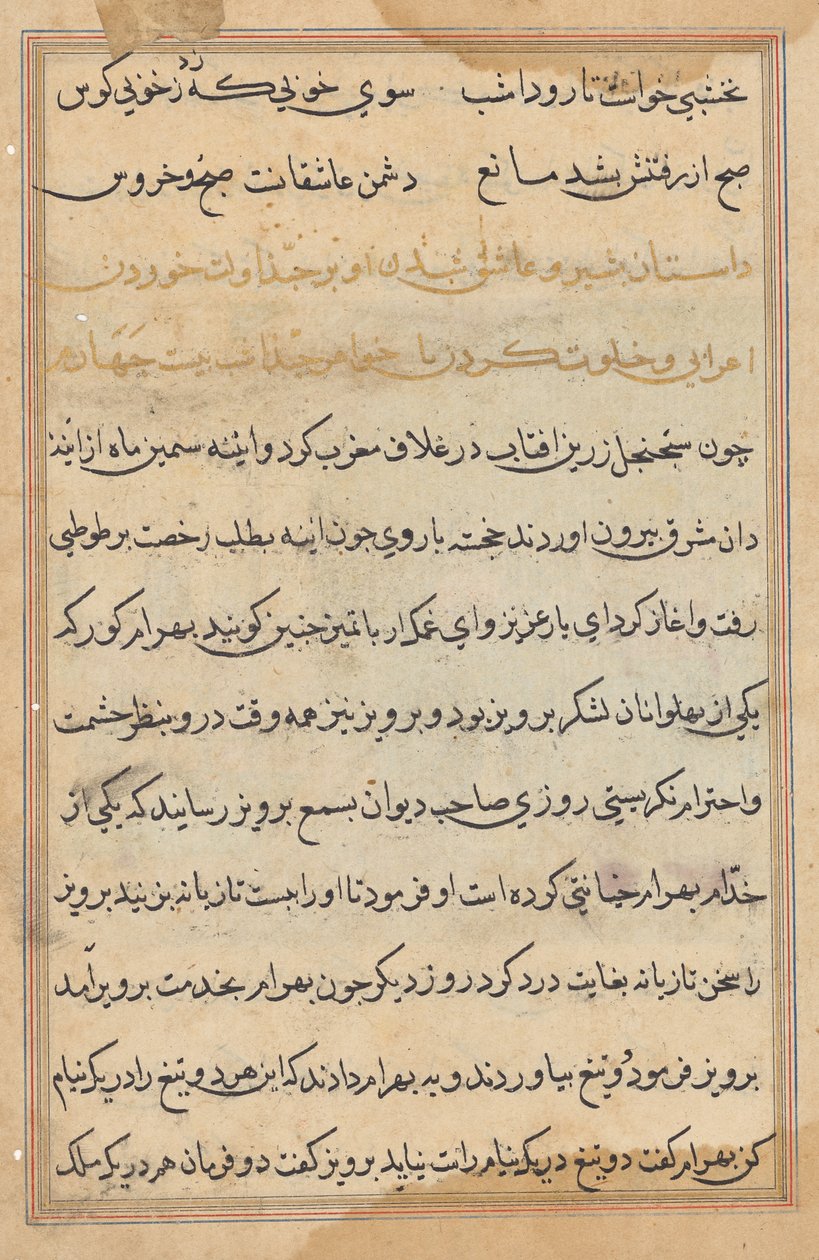 نخشبی خواست تا رود امشب سوی خوبی که زد ز خوبی کوس
صبح از رفتنش بشد مانع دشمن عاشقانست صبح و خروس
داستان بشیر و عاشق شدن او بر چندا ولت خوردن
اعرابی و خلوت کردن با خواهر چندا شب بیست چهارم
چون سجنجل زرین افتاب در غلاف مغرب کرد و اینه سمین ماه از اینه
دان مشرق بیرون اوردند خجسته با روی چون اینه بطلب رخصت بر طوطی
رفت و اغاز کرد ای یار عزیز و ای غمکسار با تمیز جنین کویند بهرام کور که
یکی از بهلوانان لشکر برویز بود و برویز نیز همه وقت درو بنظر حشمت
و احترام نکریستی روزی صاحب دیوان بسمع برویز رسانید که یکی از
خدّام بهرام خیانتی کرده است او فرمود تا او را بیست تازیانه بزنید برویز
را سخن تازیانه بغایت درد کرد روز دیکر جون بهرام بخدمت برویز آمد
برویز فرمود دو تیغ بیاوردند و به بهرام دادند که این هر دو تیغ را در یک نیام
کن بهرام کفت دو تیغ در یک نیام راست نیاید برویز کفت دو فرمان هم در یک ملک